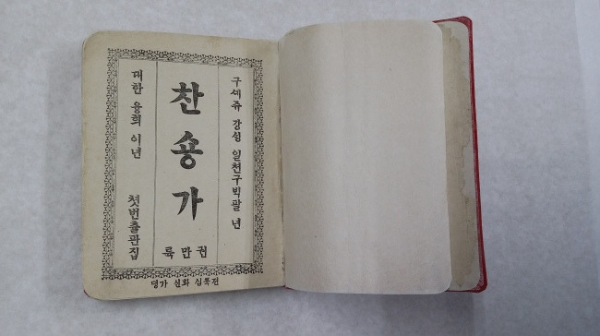 구셰쥬 강싱 일천구빅팔 년
찬숑가
륙만권
대한 융희 이년 첫번출판집
뎡가 신화 십륙전